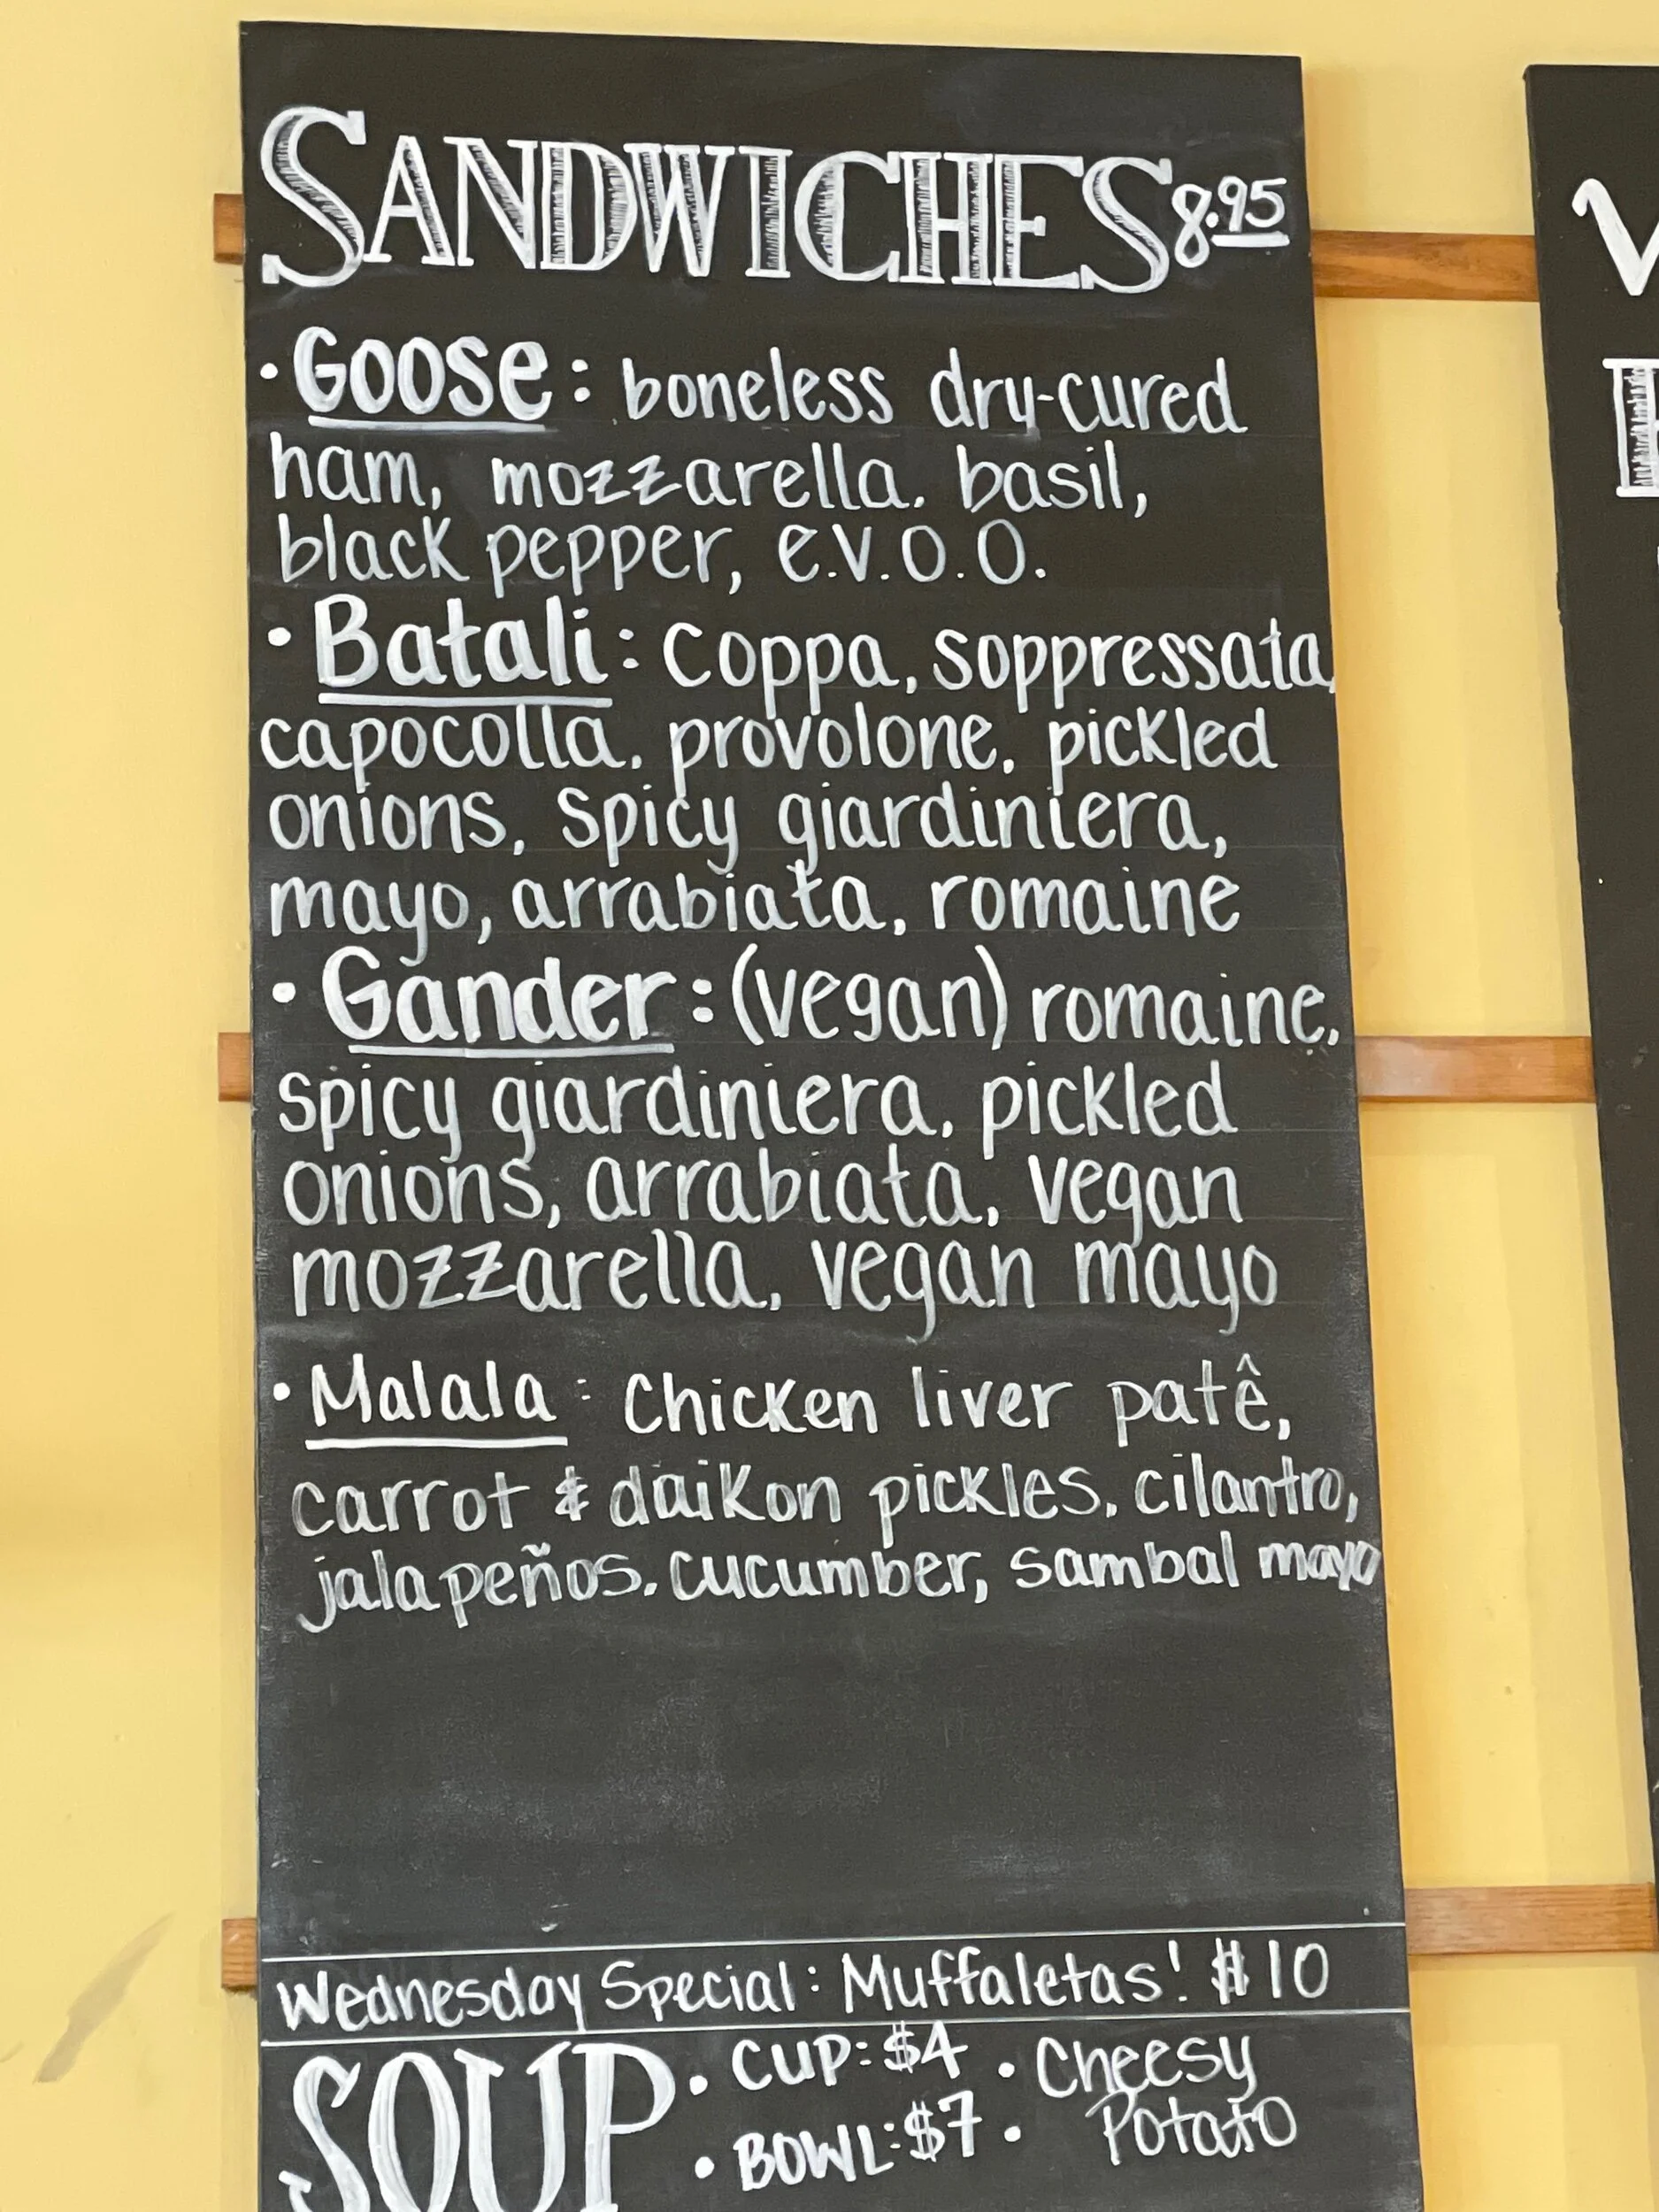 SANDWICHES 8.95
• Goose: boneless dry-cured
ham, mozzarella, basil,
black pepper, e.v.o.o.
• Batali: Coppa, soppressata,
capocolla, provolone, pickled
onions, spicy giardiniera,
mayo, arrabiata, romaine
• Gander: (vegan) romaine,
spicy giardiniera, pickled
onions, arrabiata, vegan
mozzarella, vegan mayo
• Malala: Chicken liver patê,
carrot & daikon pickles, cilantro,
jalapeños, cucumber, sambal mayo
Wednesday Special: Muffaletas! $10
SOUP
• CUP: $4
• BOWL: $7
• Cheesy
Potato
•